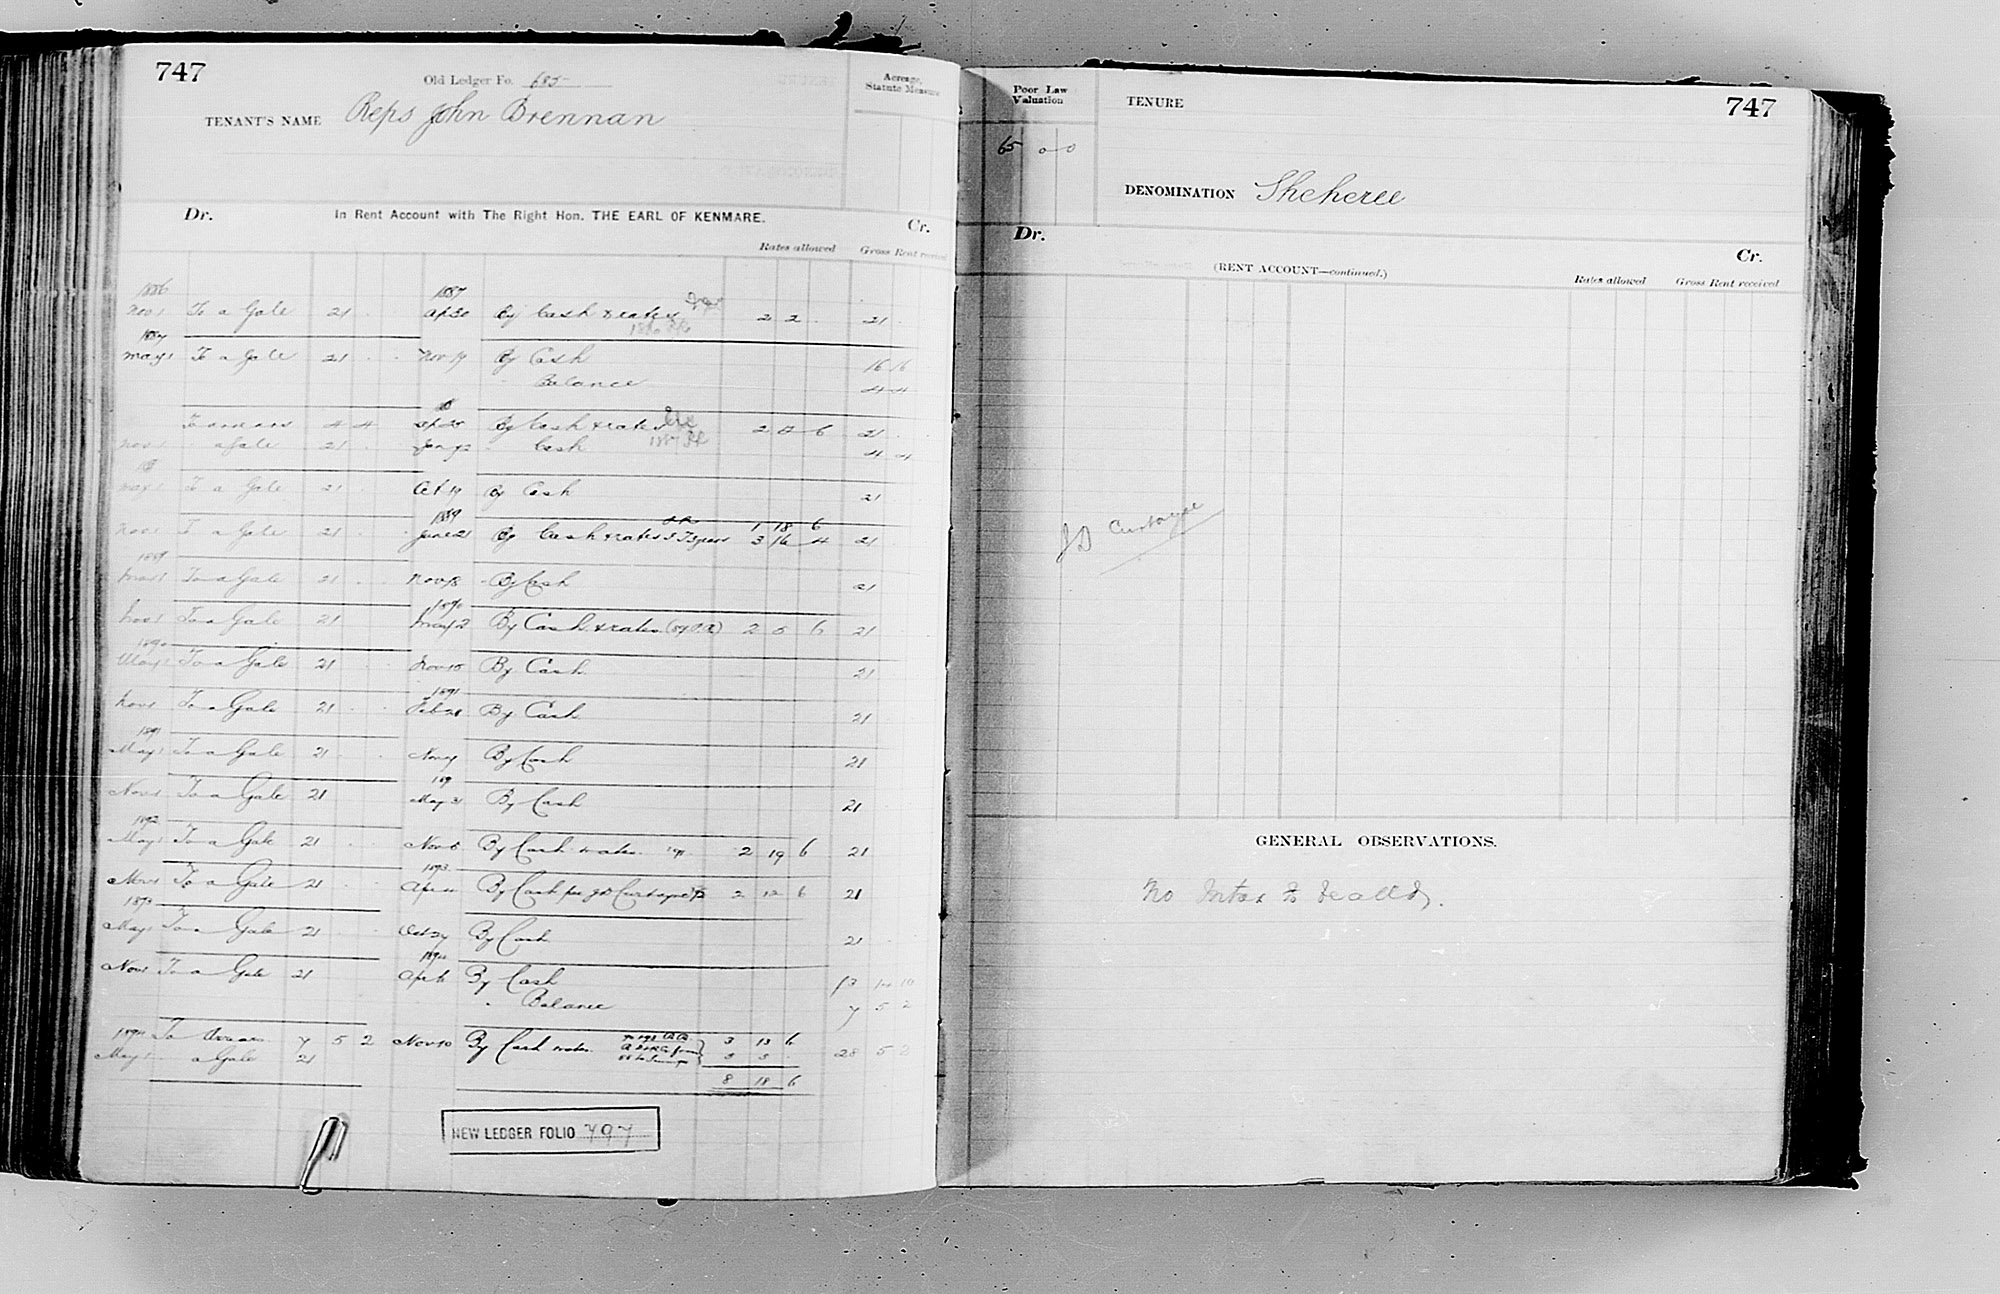 747
Old Ledger Fo. 685
Acreage, Statute Measure
TENANT'S NAME Reps John Brennan
Dr. In Rent Account with The Right Hon. THE EARL OF KENMARE. Cr.
Rates allowed Gross Rent received
1886 1887
Nov 1 To a Gale 21 Ap 30 By Cash & rates 2 2 21
1887
May 1 To a Gale 21 Nov 19 By Cash 16 16
Balance 4 4
To arrears 4 4 By Cash & rates 2 6 21
Nov 1 a Gale 21 Cash 4 4
May 1 To a Gale 21 Oct 19 By Cash 21
1889 1 18 6
Nov 1 To a Gale 21 June 21 By Cash & rates 3 16 4 21
1889
May 1 To a Gale 21 Nov 8 By Cash 21
1890
Nov 1 To a Gale 21 May 2 By Cash & rates 2 5 6 21
1890
May 1 To a Gale 21 Nov 15 By Cash 21
1891
Nov 1 To a Gale 21 Feb 28 By Cash 21
1891
May 1 To a Gale 21 Nov 7 By Cash 21
189
Nov 1 To a Gale 21 May 31 By Cash 21
1892
May 1 To a Gale 21 Nov 5 By Cash & rates 2 19 6 21
1893
Nov 1 To a Gale 21 Apr 11 By Cash per J D Curtayne 2 12 6 21
1893
May 1 To a Gale 21 Oct 27 By Cash 21
1894
Nov 1 To a Gale 21 Apr 6 By Cash 13 14 10
Balance 7 5 2
1894 To Arrears 7 5 2 Nov 10 By Cash & rates 3 13 6 28 5 2
May 1 a Gale 21
8 18 6
NEW LEDGER FOLIO 797
Poor Law Valuation
65 0 0
TENURE
747
DENOMINATION Sheheree
Dr. Cr.
(RENT ACCOUNT—continued.)
Rates allowed Gross Rent received
J D Curtayne
GENERAL OBSERVATIONS.
No